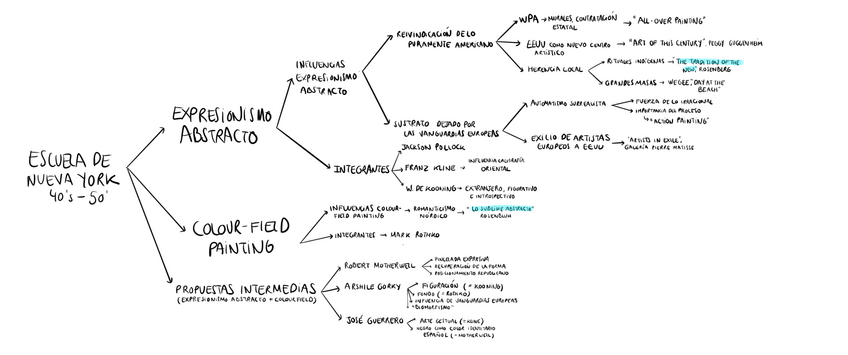 ESCUELA DE
NUEVA YORK
40's - 50'
EXPRESIONISMO
ABSTRACTO
INFLUENCIAS
EXPRESIONISMO
ABSTRACTO
REIVINDICACIÓN DE LO
PURAMENTE AMERICANO
WPA → MURALES, CONTRATACIÓN
ESTATAL
→ "ALL-OVER PAINTING"
EEUU COMO NUEVO CENTRO
ARTÍSTICO
→ "ART OF THIS CENTURY", PEGGY GUGGENHEIM
HERENCIA LOCAL
RITUALES INDÍGENAS → "THE TRADITION OF THE
NEW", ROSENBERG
GRANDES MASAS → WEGEE, "DAY AT THE
BEACH"
SUSTRATO DEJADO POR
LAS VANGUARDIAS EUROPEAS
AUTOMATISMO SURREALISTA
FUERZA DE LO IRRACIONAL
IMPORTANCIA DEL PROCESO
↳ "ACTION PAINTING"
EXILIO DE ARTISTAS
EUROPEOS A EEUU
→ "ARTISTS IN EXILE",
GALERÍA PIERRE MATISSE
INTEGRANTES
JACKSON POLLOCK
FRANZ KLINE →
INFLUENCIA CALIGRAFÍA
ORIENTAL
W. DE KOONING → EXTRANJERO, FIGURATIVO
E INTROSPECTIVO
COLOUR-FIELD
PAINTING
INFLUENCIAS COLOUR-
FIELD PAINTING
→ ROMANTICISMO
NÓRDICO
→ "LO SUBLIME ABSTRACTO"
ROSENBLUM
INTEGRANTES → MARK ROTHKO
PROPUESTAS INTERMEDIAS
(EXPRESIONISMO ABSTRACTO + COLOURFIELD)
ROBERT MOTHERWELL
PINCELADA EXPRESIVA
RECUPERACIÓN DE LA FORMA
POSICIONAMIENTO REPUBLICANO
ARSHILE GORKY
FIGURACIÓN (= KOONING)
FONDO (= ROTHKO)
INFLUENCIA DE VANGUARDIAS EUROPEAS
"BIOMORFISMO"
JOSÉ GUERRERO
ARTE GESTUAL (= KLINE)
NEGRO COMO COLOR IDENTITARIO
ESPAÑOL (= MOTHERWELL)